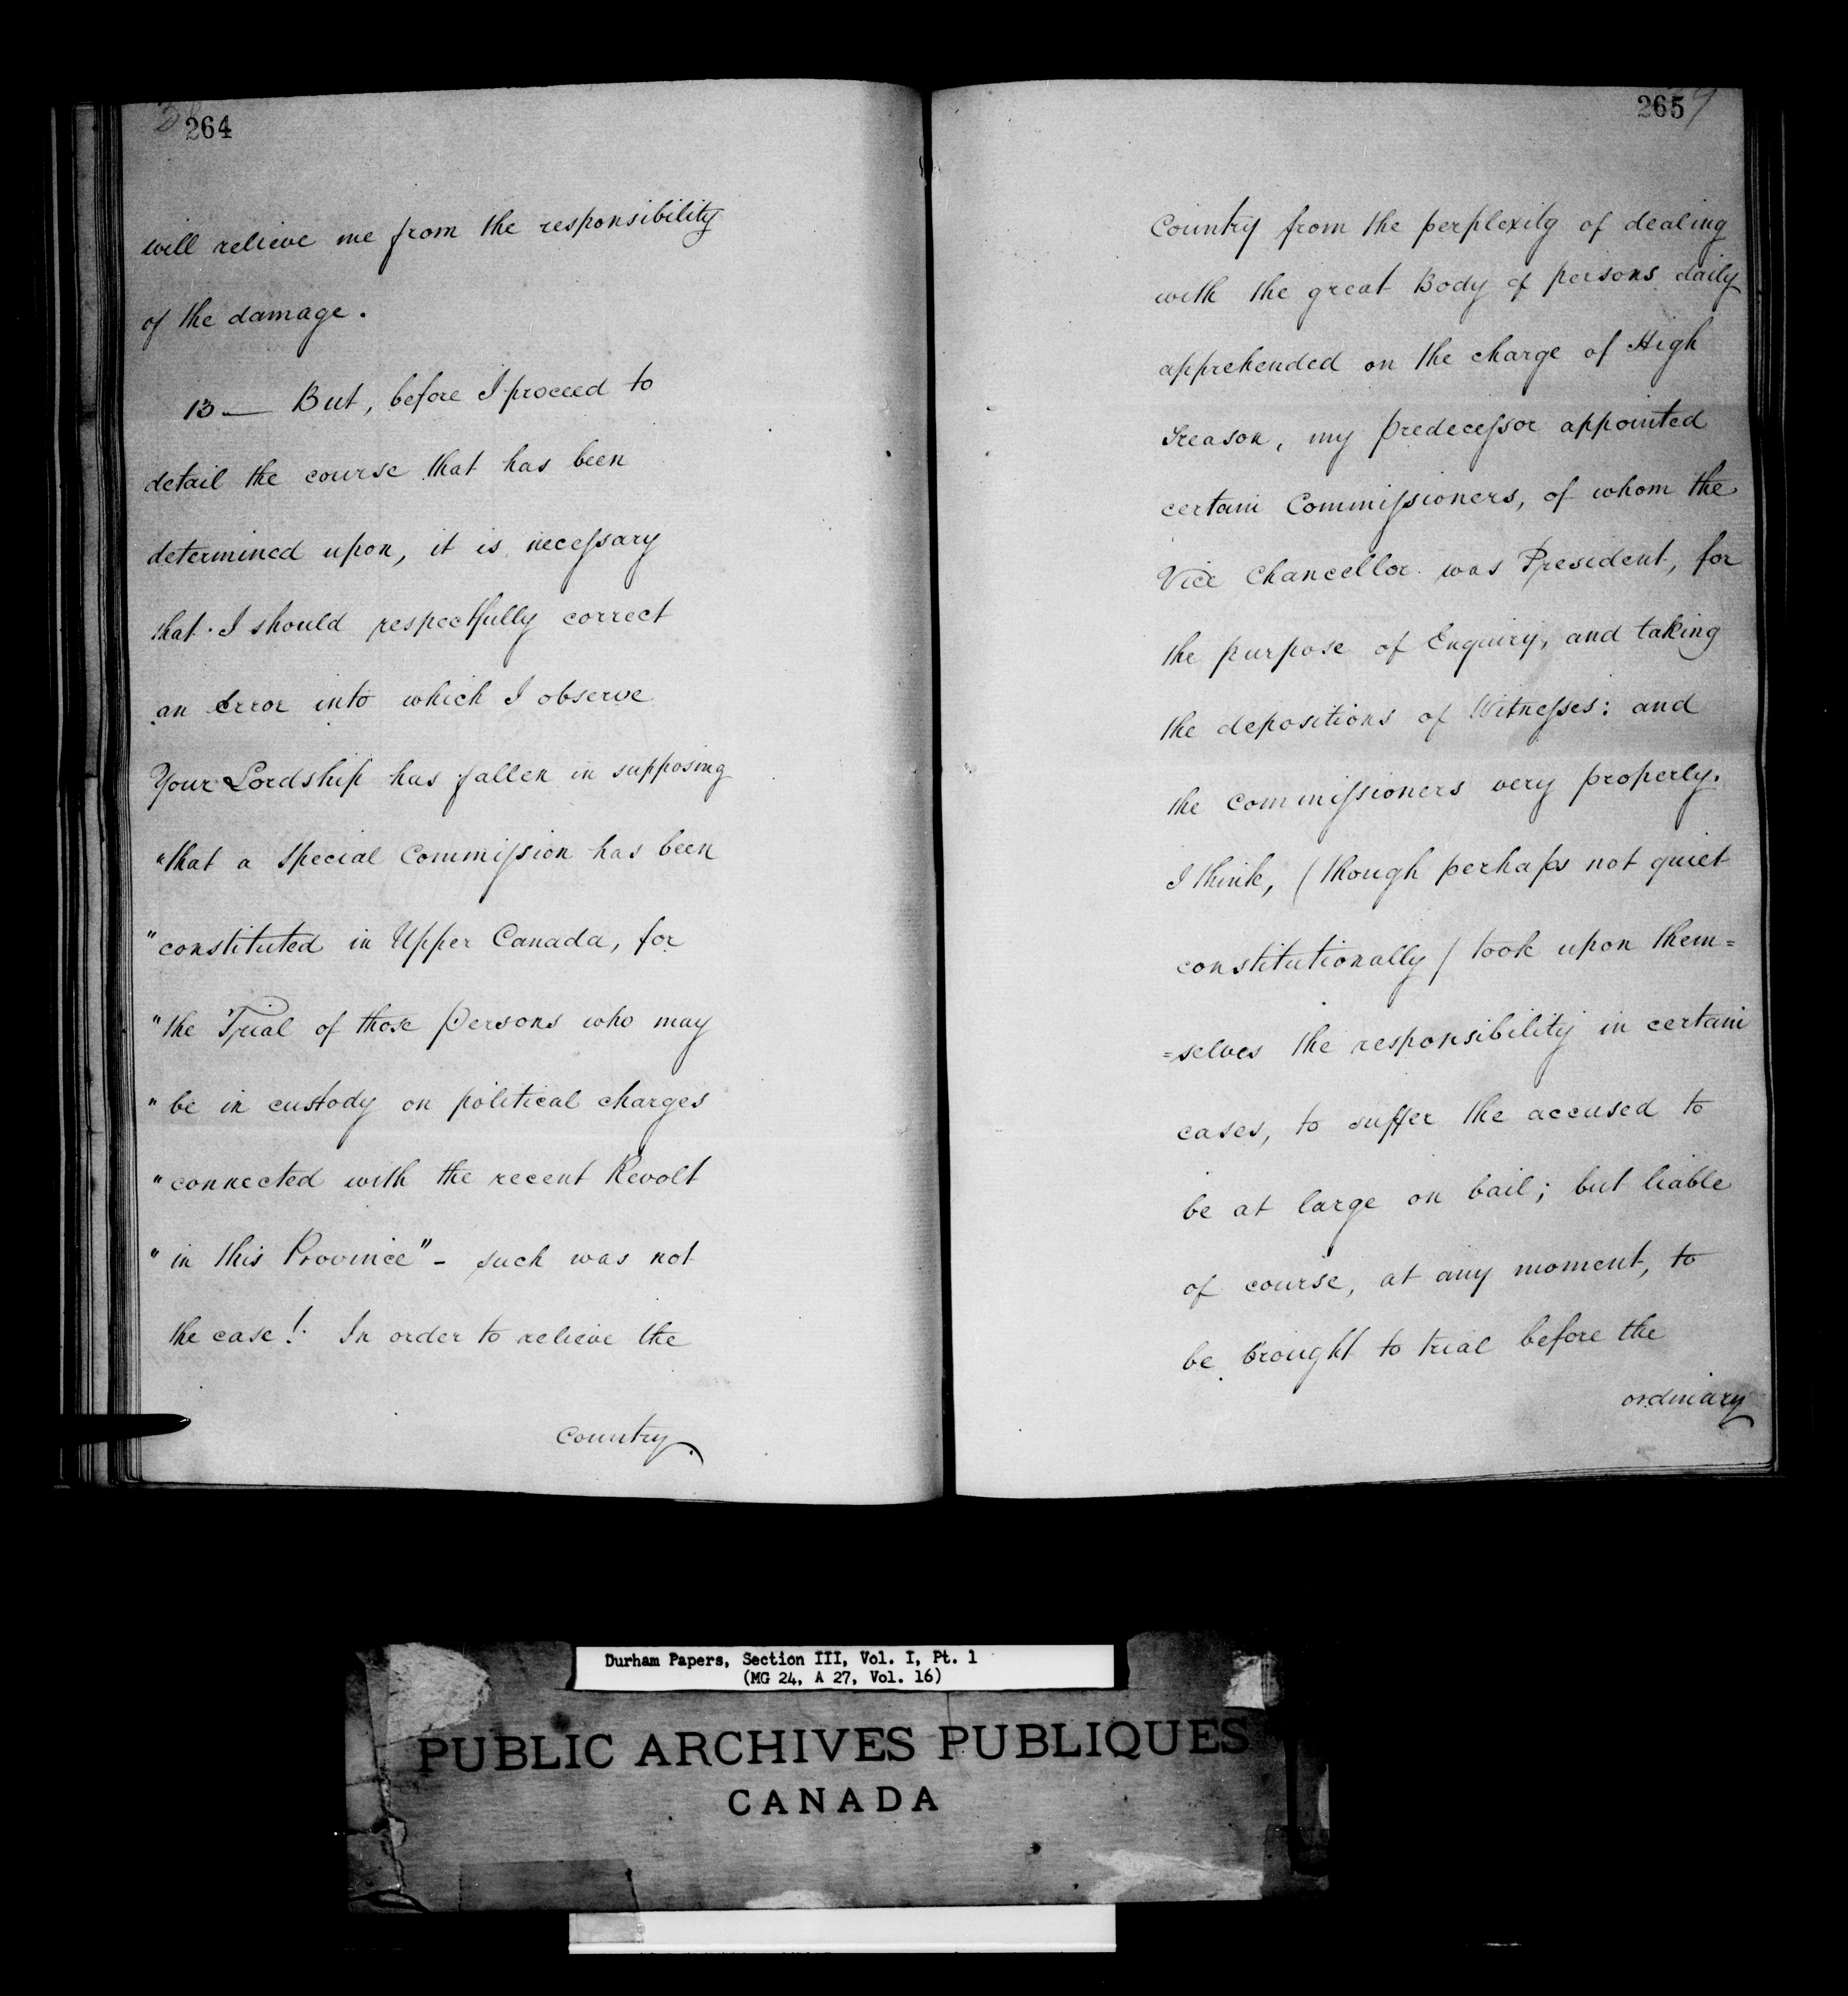 264
will relieve me from the responsibility
of the damage.
13 — But, before I proceed to
detail the course that has been
determined upon, it is necessary
that I should respectfully correct
an Error into which I observe
Your Lordship has fallen in supposing
"that a special Commission has been
"constituted in Upper Canada, for
"the Trial of those Persons who may
"be in custody on political charges
"connected with the recent Revolt
"in this Province" - such was not
the case! In order to relieve the
Country
265
Country from the perplexity of dealing
with the great Body of persons daily
apprehended on the charge of High
Treason, my Predecessor appointed
certain Commissioners, of whom the
Vice Chancellor was President, for
the purpose of Enquiry, and taking
the depositions of Witnesses: and
the Commissioners very properly.
I think, (though perhaps not quiet
constitutionally) took upon them=
=selves the responsibility in certain
cases, to suffer the accused to
be at large on bail; but liable
of course, at any moment, to
be brought to trial before the
ordinary
Durham Papers, Section III, Vol. I, Pt. 1
(MG 24, A 27, Vol. 16)
PUBLIC ARCHIVES PUBLIQUES
CANADA